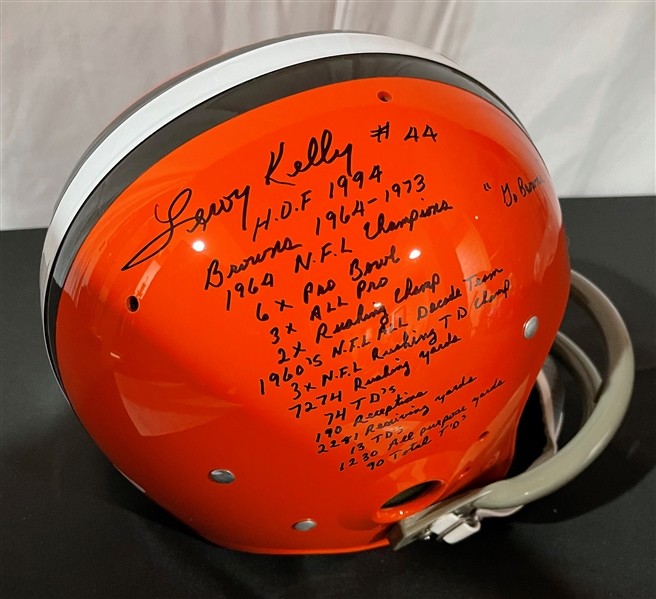 Leroy Kelly #44
H.O.F 1994
Browns 1964-1973
1964 N.F.L Champions
6x Pro Bowl
3x ALL Pro
2x Rushing Champ
1960's N.F.L ALL Decade Team
3x N.F.L Rushing TD Champ
7274 Rushing yards
74 TD's
190 Receptions
2281 Receiving yards
13 TD's
1230 All purpose yards
90 Total T'D's
"Go Browns